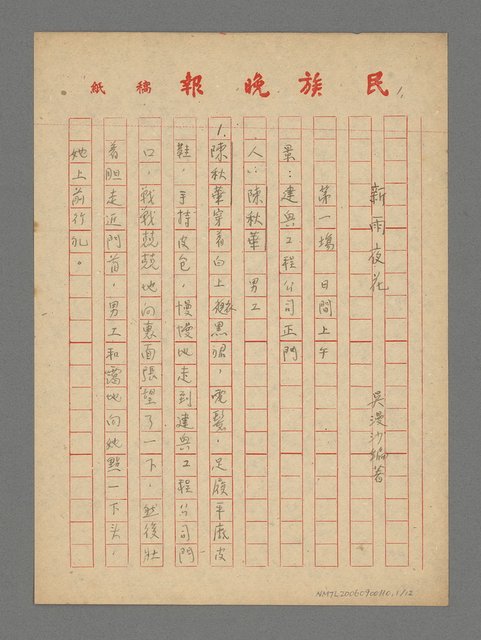 民族晚報稿紙
1.
新雨夜花 吳漫沙編著
第一場 日間上午
景：建興工程公司正門
人：陳秋華 男工
1.陳秋華穿着白上衫黑裙，電髮，足履平底皮
鞋，手持皮包，慢慢地走到建興工程公司門
口，戰戰兢兢地向裏面張望了一下，然後壯
着胆走近門首，男工和靄地向她點一下头，
她上前行礼。
NMTL20060900110, 1/12